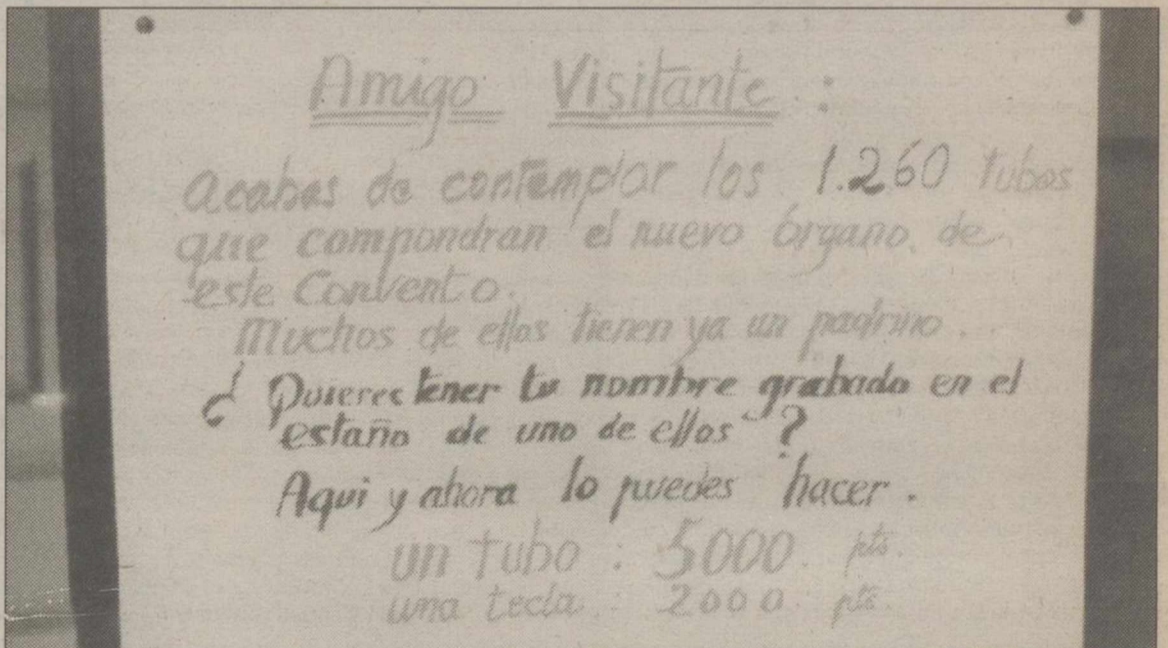 Amigo Visitante :
acabas de contemplar los 1.260 tubos
que compondran el nuevo órgano de
este Convento.
Muchos de ellos tienen ya un padrino.
¿ Quieres tener tu nombre grabado en el
estaño de uno de ellos ?
Aqui y ahora lo puedes hacer.
un tubo : 5000 pts.
una tecla : 2000 pts.